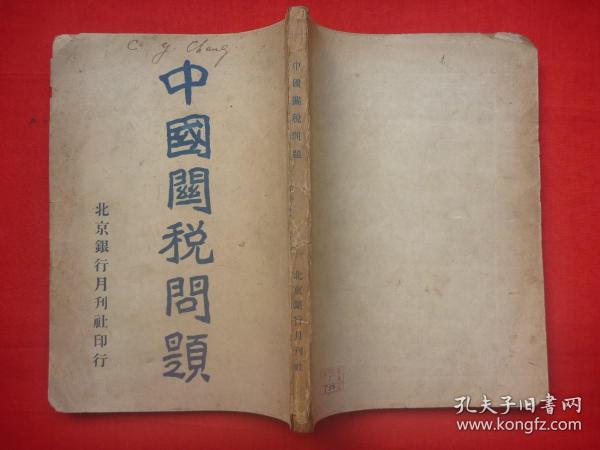 C. Y. Chang
中國關税問題
北京銀行月刊社印行
中國關税問題
北京銀行月刊社
孔夫子旧书网
www.kongfz.com